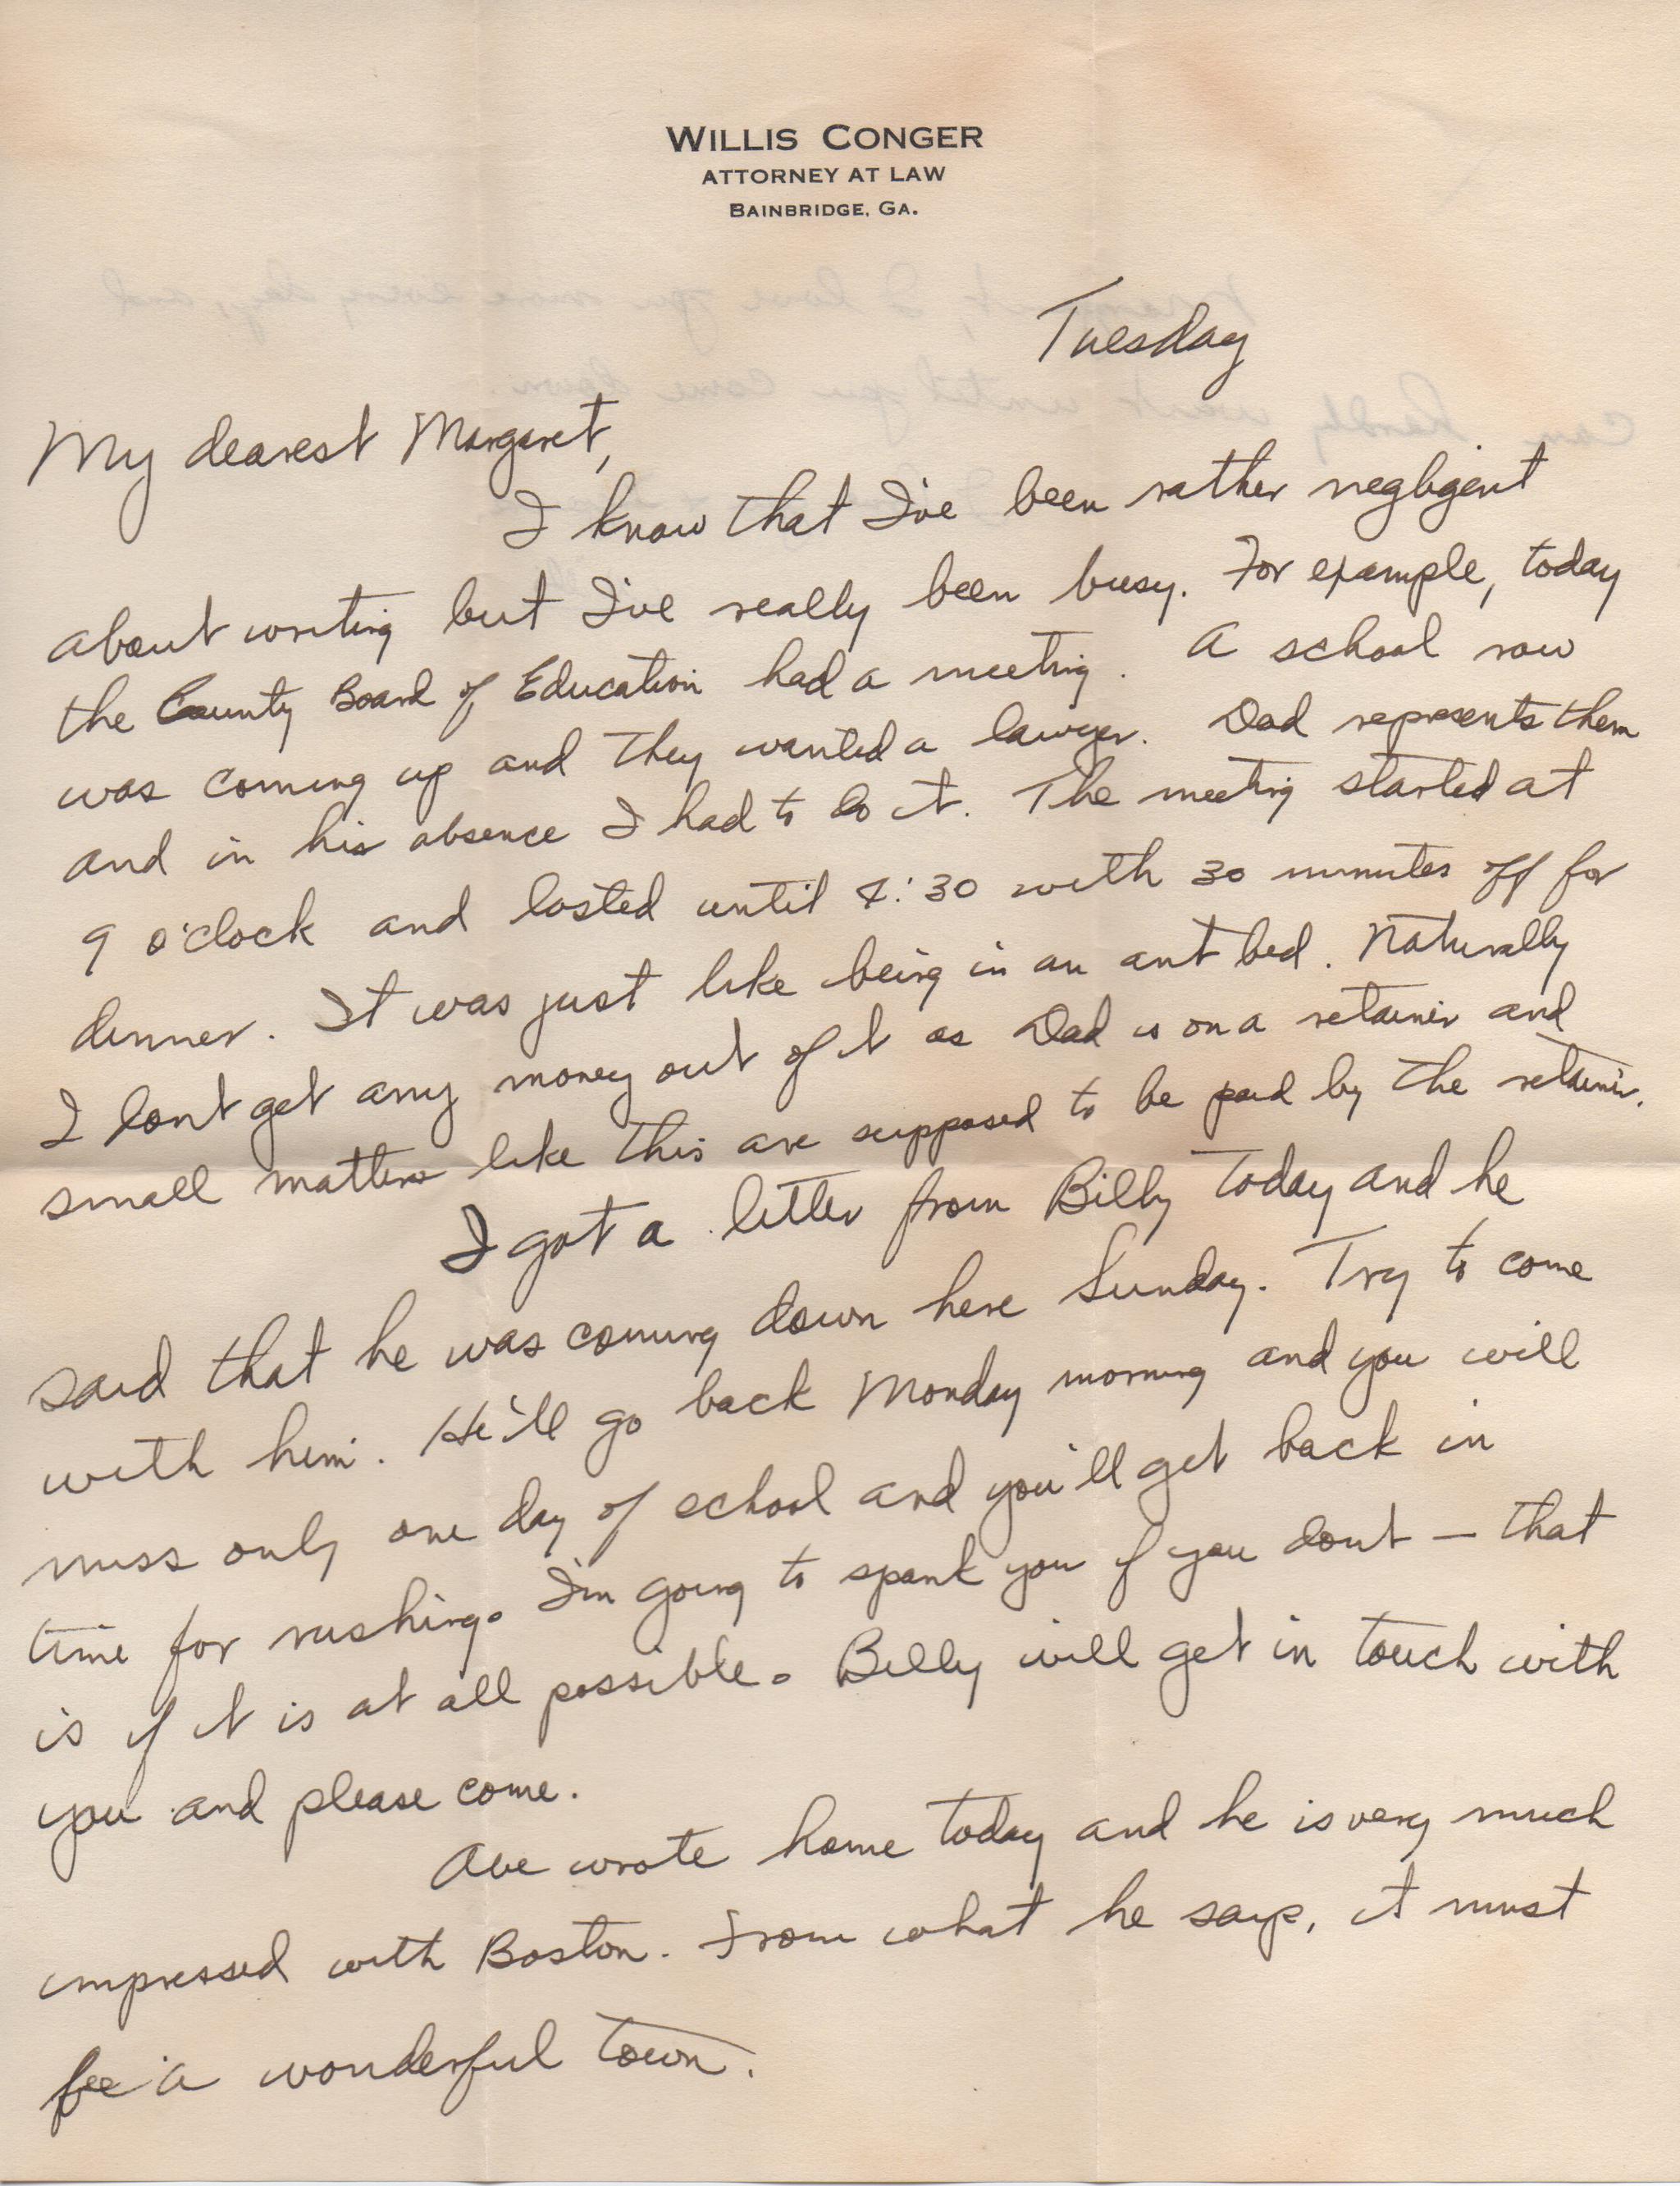 WILLIS CONGER
ATTORNEY AT LAW
BAINBRIDGE, GA.
Tuesday
My dearest Margaret,
I know that I've been rather negligent
about writing but I've really been busy. For example, today
the County Board of Education had a meeting. A school row
was coming up and they wanted a lawyer. Dad represents them
and in his absence I had to do it. The meeting started at
9 o'clock and lasted until 4:30 with 30 minutes off for
dinner. It was just like being in an ant bed. Naturally
I dont get any money out of it as Dad is on a retainer and
small matters like this are supposed to be paid by the retainer.
I got a letter from Billy today and he
said that he was coming down here Sunday. Try to come
with him. He'll go back Monday morning and you will
miss only one day of school and you'll get back in
time for rushing. I'm going to spank you if you dont — that
is if it is at all possible. Billy will get in touch with
you and please come.
Abe wrote home today and he is very much
impressed with Boston. From what he says, it must
be a wonderful town.